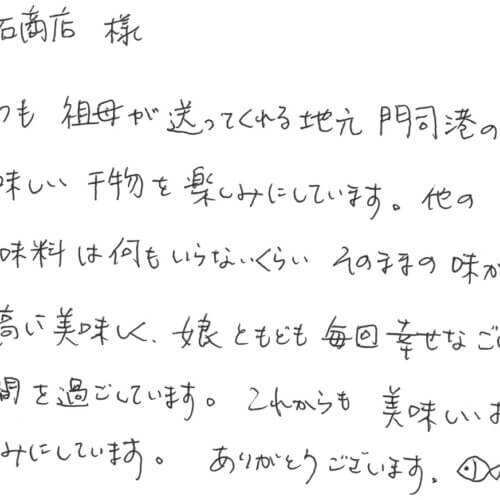 石商店 様
つも 祖母が送ってくれる地元 門司港の
味しい 干物を楽しみにしています。他の
味料は何もいらないくらい そのままの 味が
高に美味しく、娘ともども毎回幸せなご
間を過ごしています。これからも 美味しいお
みにしています。 ありがとうございます。